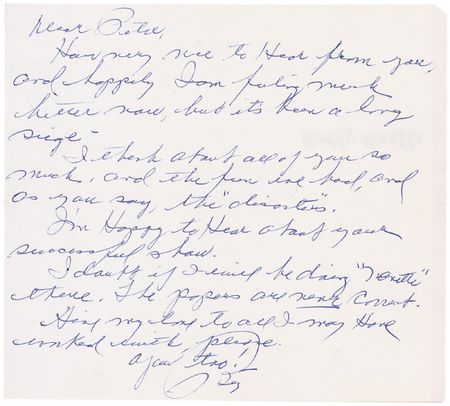 Dear Peter,
How very nice to Hear from you,
and happily I am feeling much
better now, but it's been a long
siege -
I think about all of you so
much, and the fun we had, and
as you say, the "disasters".
I'm Happy to Hear about your
successful show.
I doubt if I will be doing
there. The papers are never correct.
Give my love to all I may Have
worked with, please.
you too!